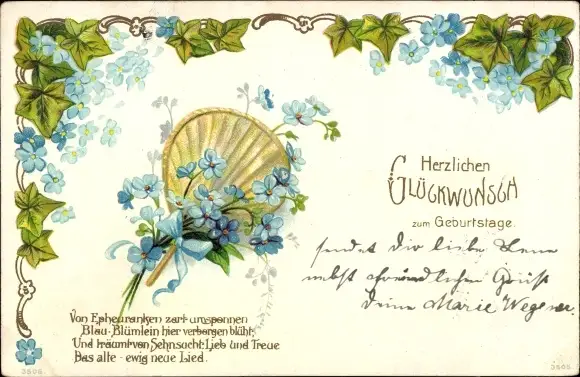 Herzlichen
GLÜCKWUNSCH
zum Geburtstage.
sendet Dir liebe
nebst freundlichen Gruß
Deine Marie Wegener
Von Epheuranken zart umsponnen
Blau-Blümlein hier verborgen blüht,
Und träumt von Sehnsucht, Lieb und Treue
Das alte - ewig neue Lied.
3505.
3505.